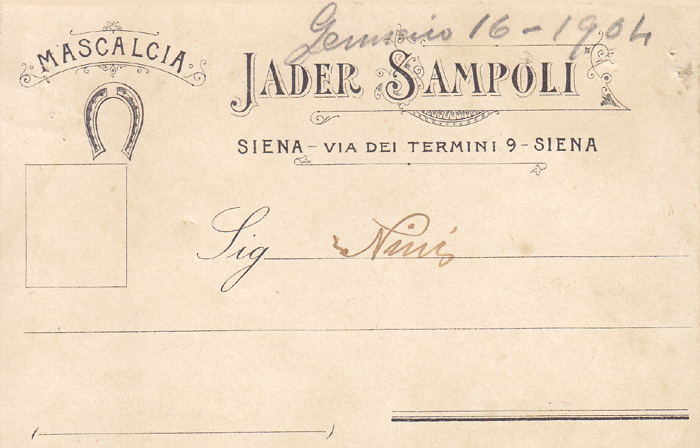 Gennaio 16-1904
MASCALCIA
JADER SAMPOLI
SIENA - VIA DEI TERMINI 9 - SIENA
Sig Nini